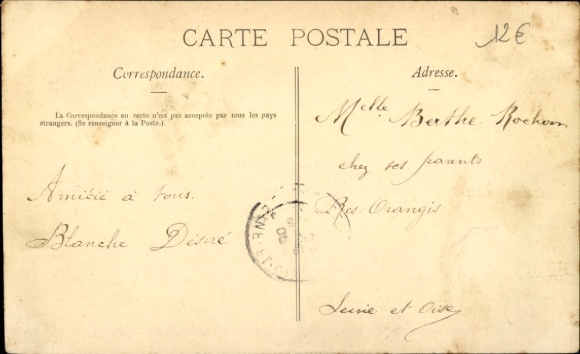 12€
CARTE POSTALE
Correspondance.
La Correspondance au recto n'est pas acceptée par tous les pays
étrangers. (Se renseigner à la Poste.)
Amitié à tous.
Blanche Désiré
Adresse.
Melle Berthe Rochon
chez ses parents
Ris-Orangis
Seine et Oise